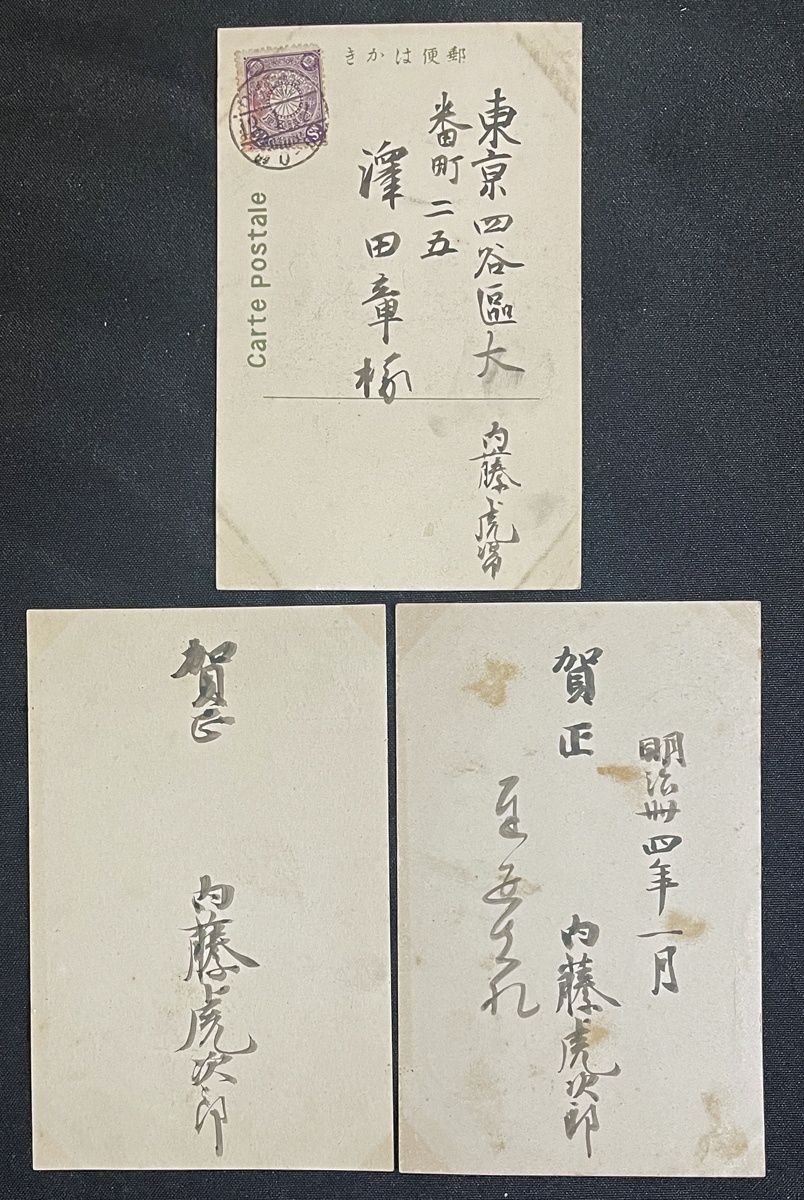 郵便はかき
東京四谷區大
番町二五
澤田章様
内藤虎次郎
Carte Postale
賀正
内藤虎次郎
明治卅四年一月
賀正
内藤虎次郎